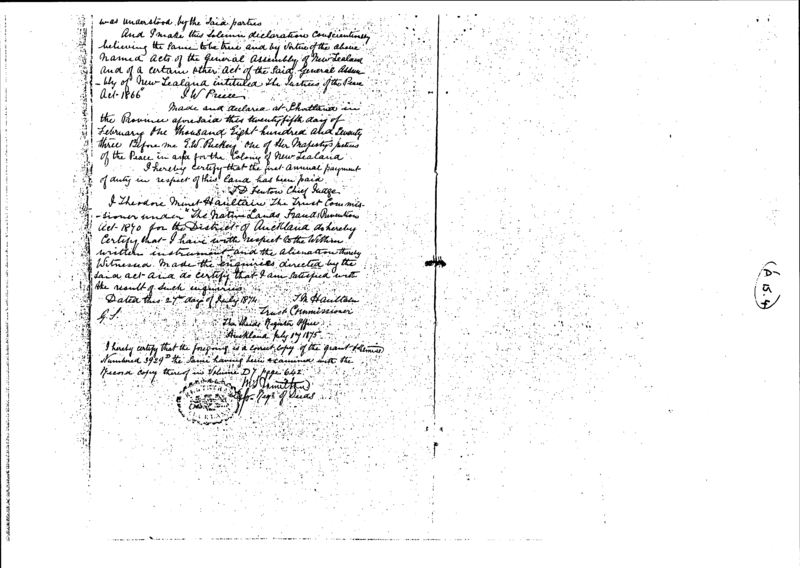 was understood by the said parties
And I make this Solemn declaration Conscientiously
believing the same to be true and by virtue of the above
named Acts of the General Assembly of New Zealand
and of a certain other Act of the said General Assem
-bly of New Zealand intituled The Justices of the Peace
Act 1866 J. W. Preece
Made and declared at Shortland in
the Province aforesaid this twentyfifth day of
February One thousand Eight hundred and Seventy
three Before me E. W. Puckey one of Her Majestys justices
of the Peace in and for the Colony of New Zealand
I hereby certify that the first annual payment
of duty in respect of this land has been paid
F D Fenton Chief Judge
I Theodore Minet Haultain The Trust Commis-
-sioner under "The Native Lands Frauds Prevention
Act 1870 for the District of Auckland do hereby
Certify that I have with respect to the Within
written instrument and the alienation thereby
Witnessed made the enquiries directed by the
said act and do certify that I am satisfied with
the result of such inquiries
Dated this 27th day of July 1874. T M Haultain
Trust Commissioner
The Deeds Register Office
Auckland July 17 1875
I hereby certify that the foregoing is a correct copy of the grant
Numbered 3929D the same having been examined with the
Record copy thereof in Volume D 7 page 642
Regr of Deeds